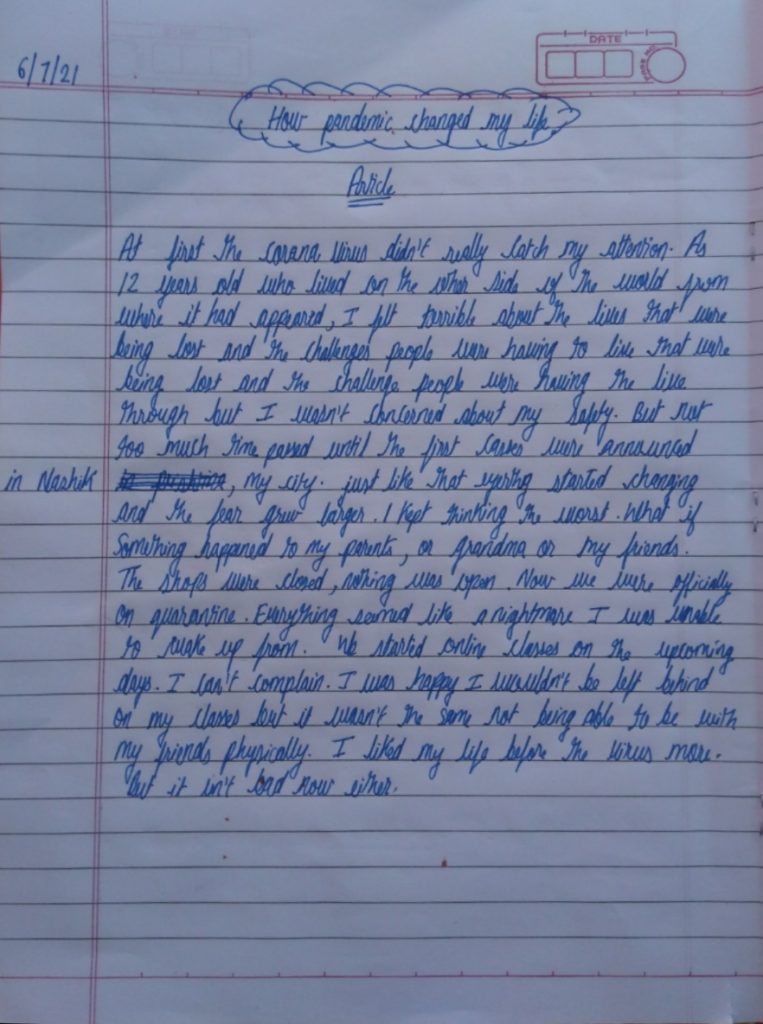 DATE
PAGE NO.
6/7/21
How pandemic changed my life
Article
At first the corana virus didn't really catch my attention. As
12 years old who lived on the other side of the world from
where it had appeared, I felt terrible about the lives that were
being lost and the challenges people were having to live that were
being lost and the challenge people were having the live
through but I wasn't concerned about my safety. But not
too much time passed until the first casses were announced
in Nashik, my city. just like that eyering started changing
and the fear grew larger. I kept thinking the worst. What if
Something happened to my parents, or grandma or my friends.
The shops were closed, nothing was open. Now we were officially
on quarantine. Everything seemed like a nightmare I was unable
to wake up from. We started online classes on the upcoming
days. I can't complain. I was happy I wouldn't be left behind
on my classes but it wasn't the same not being able to be with
my friends physically. I liked my life before the virus more.
But it isn't bad now either.